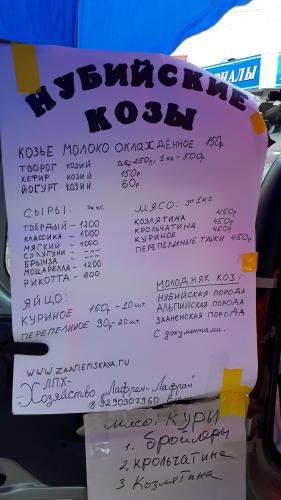 НУБИЙСКИЕ
КОЗЫ
КОЗЬЕ МОЛОКО ОХЛАЖДЁННОЕ 150р
ТВОРОГ КОЗИЙ 250р, 1кг-500р
КЕФИР КОЗИЙ 150р
ЙОГУРТ КОЗИЙ 60р
СЫРЫ:
ТВЁРДЫЙ-1200
КЛАССИКА-1000
МЯГКИЙ-1000
СУЛУГУНИ
БРЫНЗА
МОЦАРЕЛЛА-1200
РИКОТТА-800
МЯСО: за 1кг.
КОЗЛЯТИНА 450р
КРОЛЬЧАТИНА 450р
КУРИНОЕ 450р
ПЕРЕПЕЛИНЫЕ ТУШКИ 450р
ЯЙЦО:
КУРИНОЕ 150р-10шт.
ПЕРЕПЕЛИНОЕ 90р-20шт.
МОЛОДНЯК КОЗ:
НУБИЙСКАЯ ПОРОДА
АЛЬПИЙСКАЯ ПОРОДА
ЗААНЕНСКАЯ ПОРОДА
С документами.
WWW.ZAANENSKAYA.RU
ЛПХ-
Хозяйство "Лафрен-Лафран"
мясо: куры
1. бройлеры
2. крольчатина
3 Козлятина